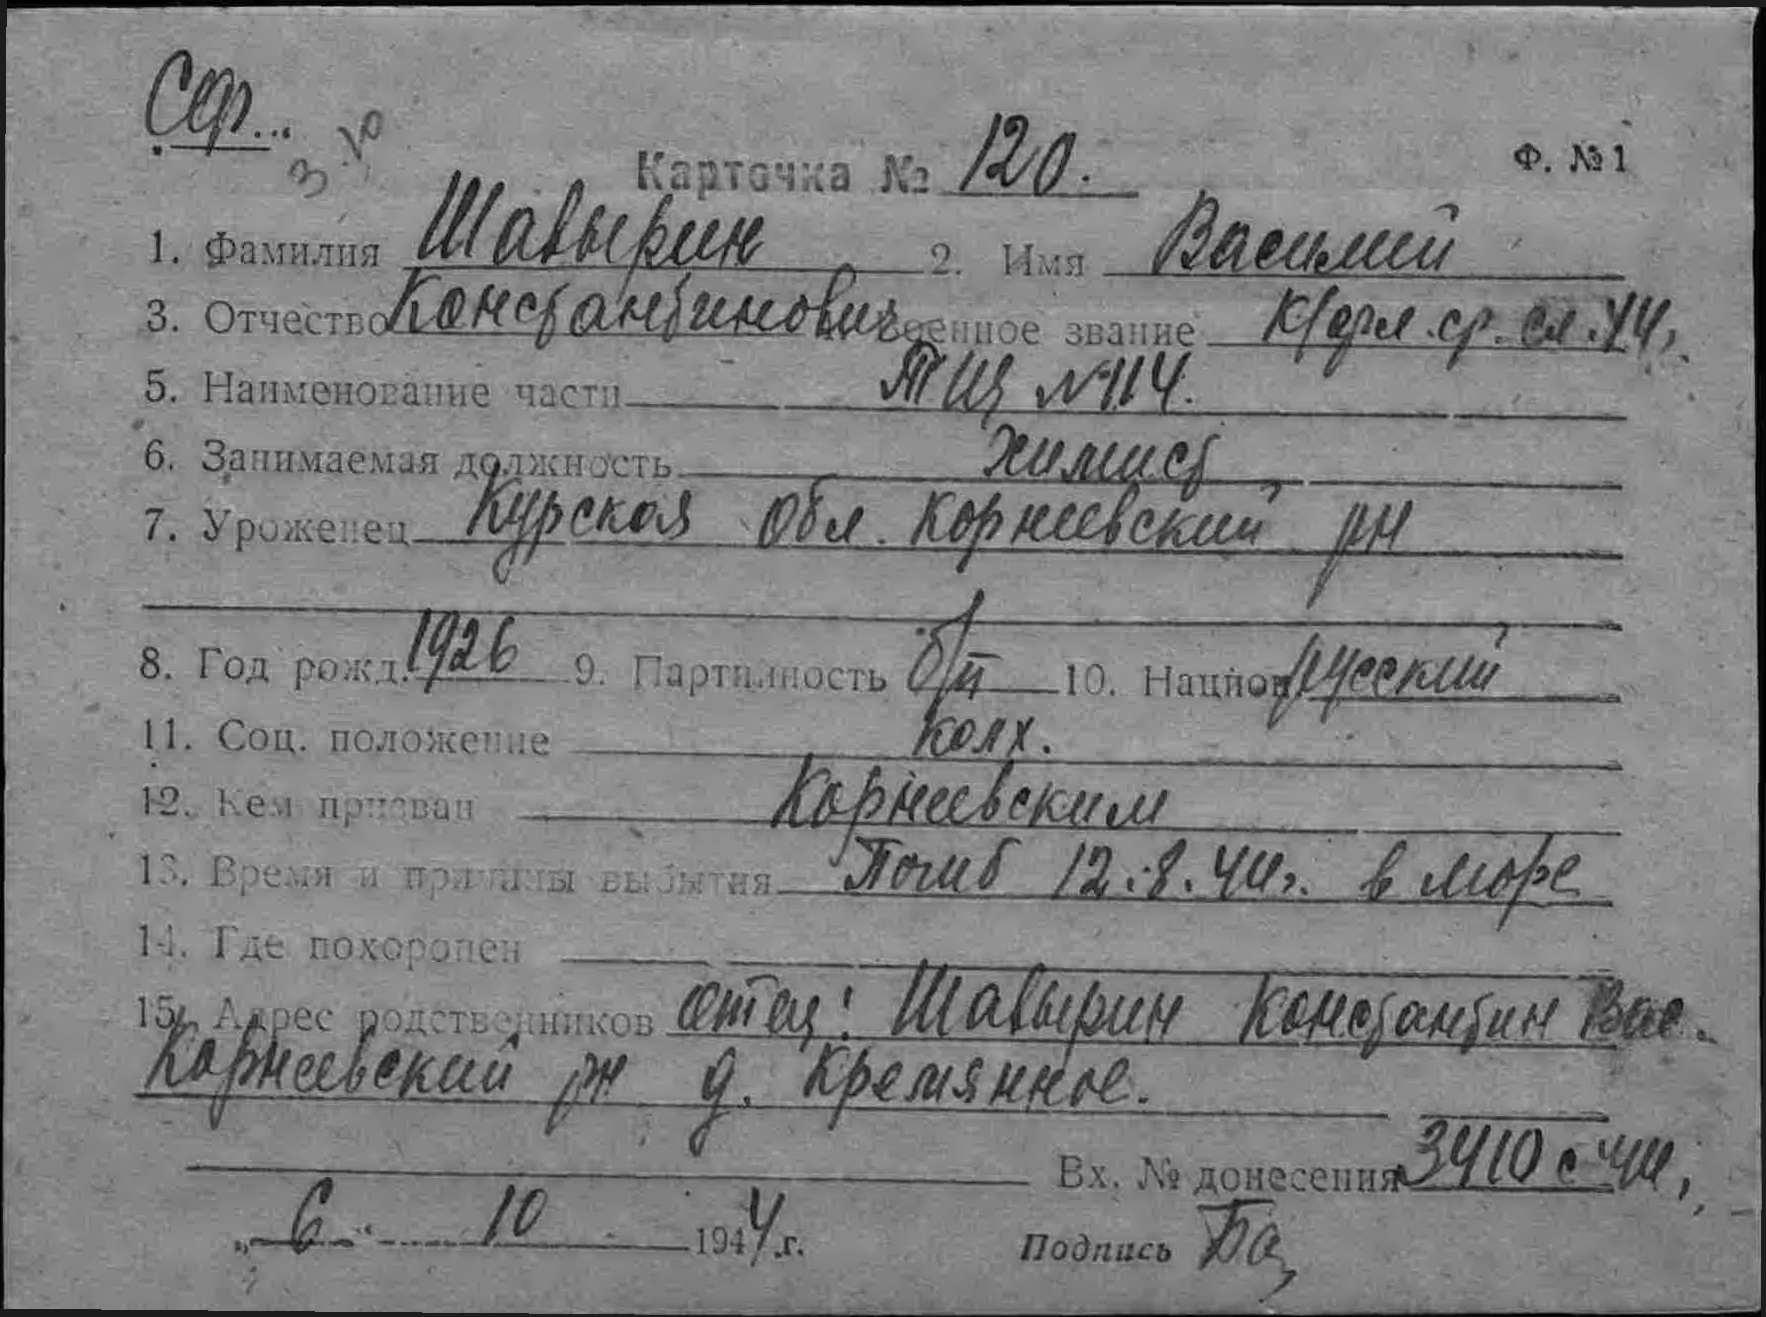 Сер...
3. 10
Карточка № 120. Ф. №1
1. Фамилия Шавырин 2. Имя Василий
3. Отчество Константинович военное звание к/фл. ср. сл. 44,
5. Наименование части ТЩ №114.
6. Занимаемая должность химист
7. Уроженец Курская обл. Корнеевский рн
8. Год рожд. 1926 9. Партийность б/п 10. Национ русский
11. Соц. положение колх.
12. Кем призван Корнеевским
13. Время и причины выбытия Погиб 12.8.44г. в море
14. Где похоронен
15. Адрес родственников отец: Шавырин Константин Вас.
Корнеевский рн д. Кремянное.
Вх. № донесения 3410с 44,
„6“ 10 1944.г. Подпись Ба